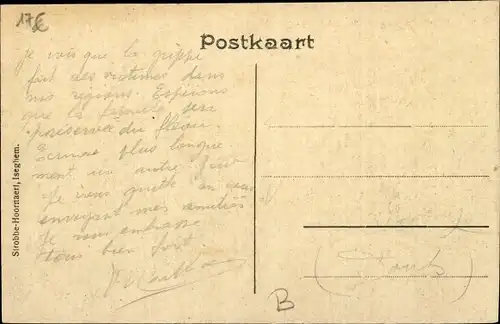 17€
Postkaart
je vois que la grippe
fait des victimes dans
nos régions. Espérons
que la famille sera
préservée du fléau.
plus longue
ment un autre jour
Je vous quitte en vous
envoyant mes amitiés
Je vous embrasse
tous bien fort
Strobbe-Hoornaert, Iseghem.
B